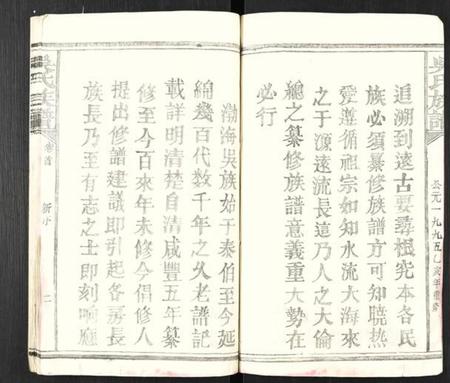 吳氏族譜
公元一九九五乙亥年重修
追溯到遠古要尋根究本各民
族必須纂修族譜方可知曉熱
愛遵循祖宗如知水流大海來
之于源遠流長這乃人之大倫
總之纂修族譜意義重大勢在
必行
渤海吳族始于泰伯至今延
綿幾百代數千年之久老譜記
載詳明清楚自清咸豐五年纂
修至今百來年未修今倡修人
提出修譜建議即引起各房長
族長乃至有志之士即刻响應
吳氏族譜
卷首
新序
二